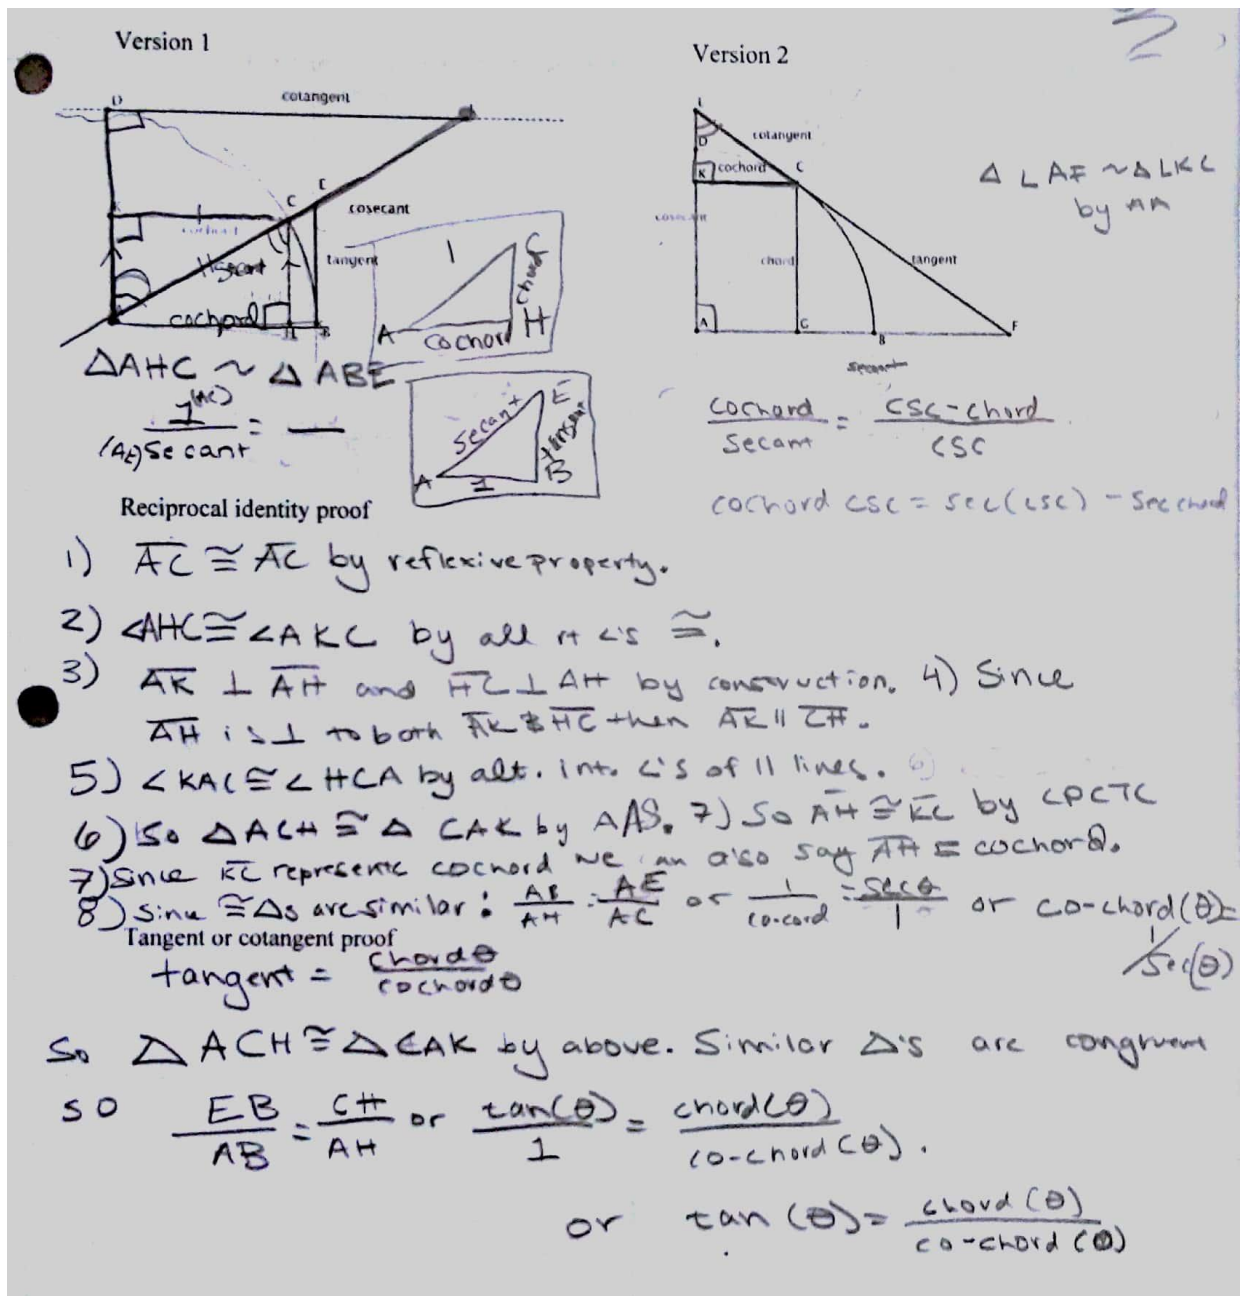 Version 1
Version 2
D
cotangent
E
C
cosecant
tangent
cochord
B
1
C
chord
A
cochord
H
L
D
cotangent
K
cochord
C
cosecant
chord
tangent
A
G
B
F
secant
Δ LAF ~ Δ LKC
by AA
ΔAHC ~ Δ ABE
1 (AC)
(AE) Secant
= —
secant
E
tangent
A
1
B
cochord / secant = csc - chord / csc
cochord csc = sec(csc) - sec chord
Reciprocal identity proof
1) AC ≅ AC by reflexive property.
2) ∠AHC ≅ ∠AKC by all rt ∠'s ≅.
3) AK ⊥ AH and HC ⊥ AH by construction. 4) Since
AH is ⊥ to both AK & HC then AK || CH.
5) ∠KAC ≅ ∠HCA by alt. int. ∠'s of || lines.
6) So Δ ACH ≅ Δ CAK by AAS. 7) So AH ≅ KC by CPCTC
7) Since KC represents cochord we can also say AH = cochord.
8) Since ≅ Δs are similar: AB / AH = AE / AC or 1 / co-cord = sec θ / 1 or co-chord(θ) =
1 / sec(θ)
Tangent or cotangent proof
tangent = chord θ / cochord θ
So Δ ACH ≅ Δ CAK by above. Similar Δ's are congruent
so EB / AB = CH / AH or tan(θ) / 1 = chord(θ) / co-chord(θ).
or tan(θ) = chord(θ) / co-chord(θ)